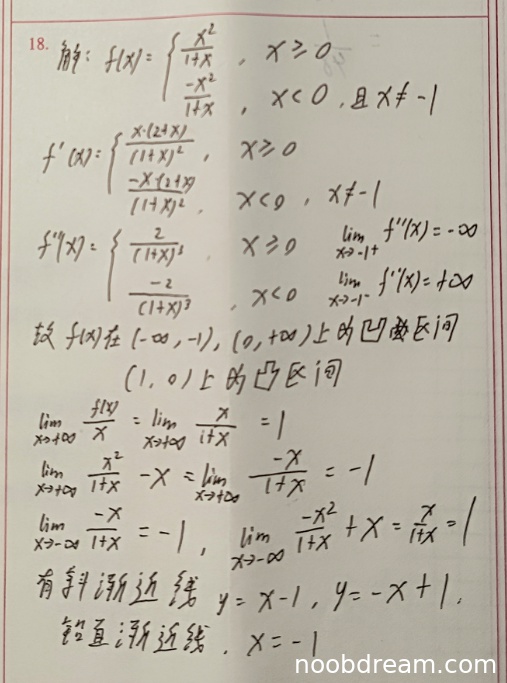 18. 解: f(x) = { x²/(1+x) , x ≥ 0
-x²/(1+x) , x < 0 , 且 x ≠ -1
f'(x) = { x·(2+x)/(1+x)² , x ≥ 0
-x·(2+x)/(1+x)² , x < 0 , x ≠ -1
f''(x) = { 2/(1+x)³ x ≥ 0 lim x→-1⁺ f''(x) = -∞
-2/(1+x)³ , x < 0 lim x→-1⁻ f''(x) = +∞
故 f(x) 在 (-∞, -1), (0, +∞) 上的凹区间
(1, 0) 上的凸区间
lim x→+∞ f(x)/x = lim x→+∞ x/(1+x) = 1
lim x→+∞ x²/(1+x) - x = lim x→+∞ -x/(1+x) = -1
lim x→-∞ -x/(1+x) = -1 , lim x→-∞ -x²/(1+x) + x = x/(1+x) = 1
有斜渐近线 y = x-1 , y = -x+1 .
铅直渐近线 . x = -1
noobdream.com